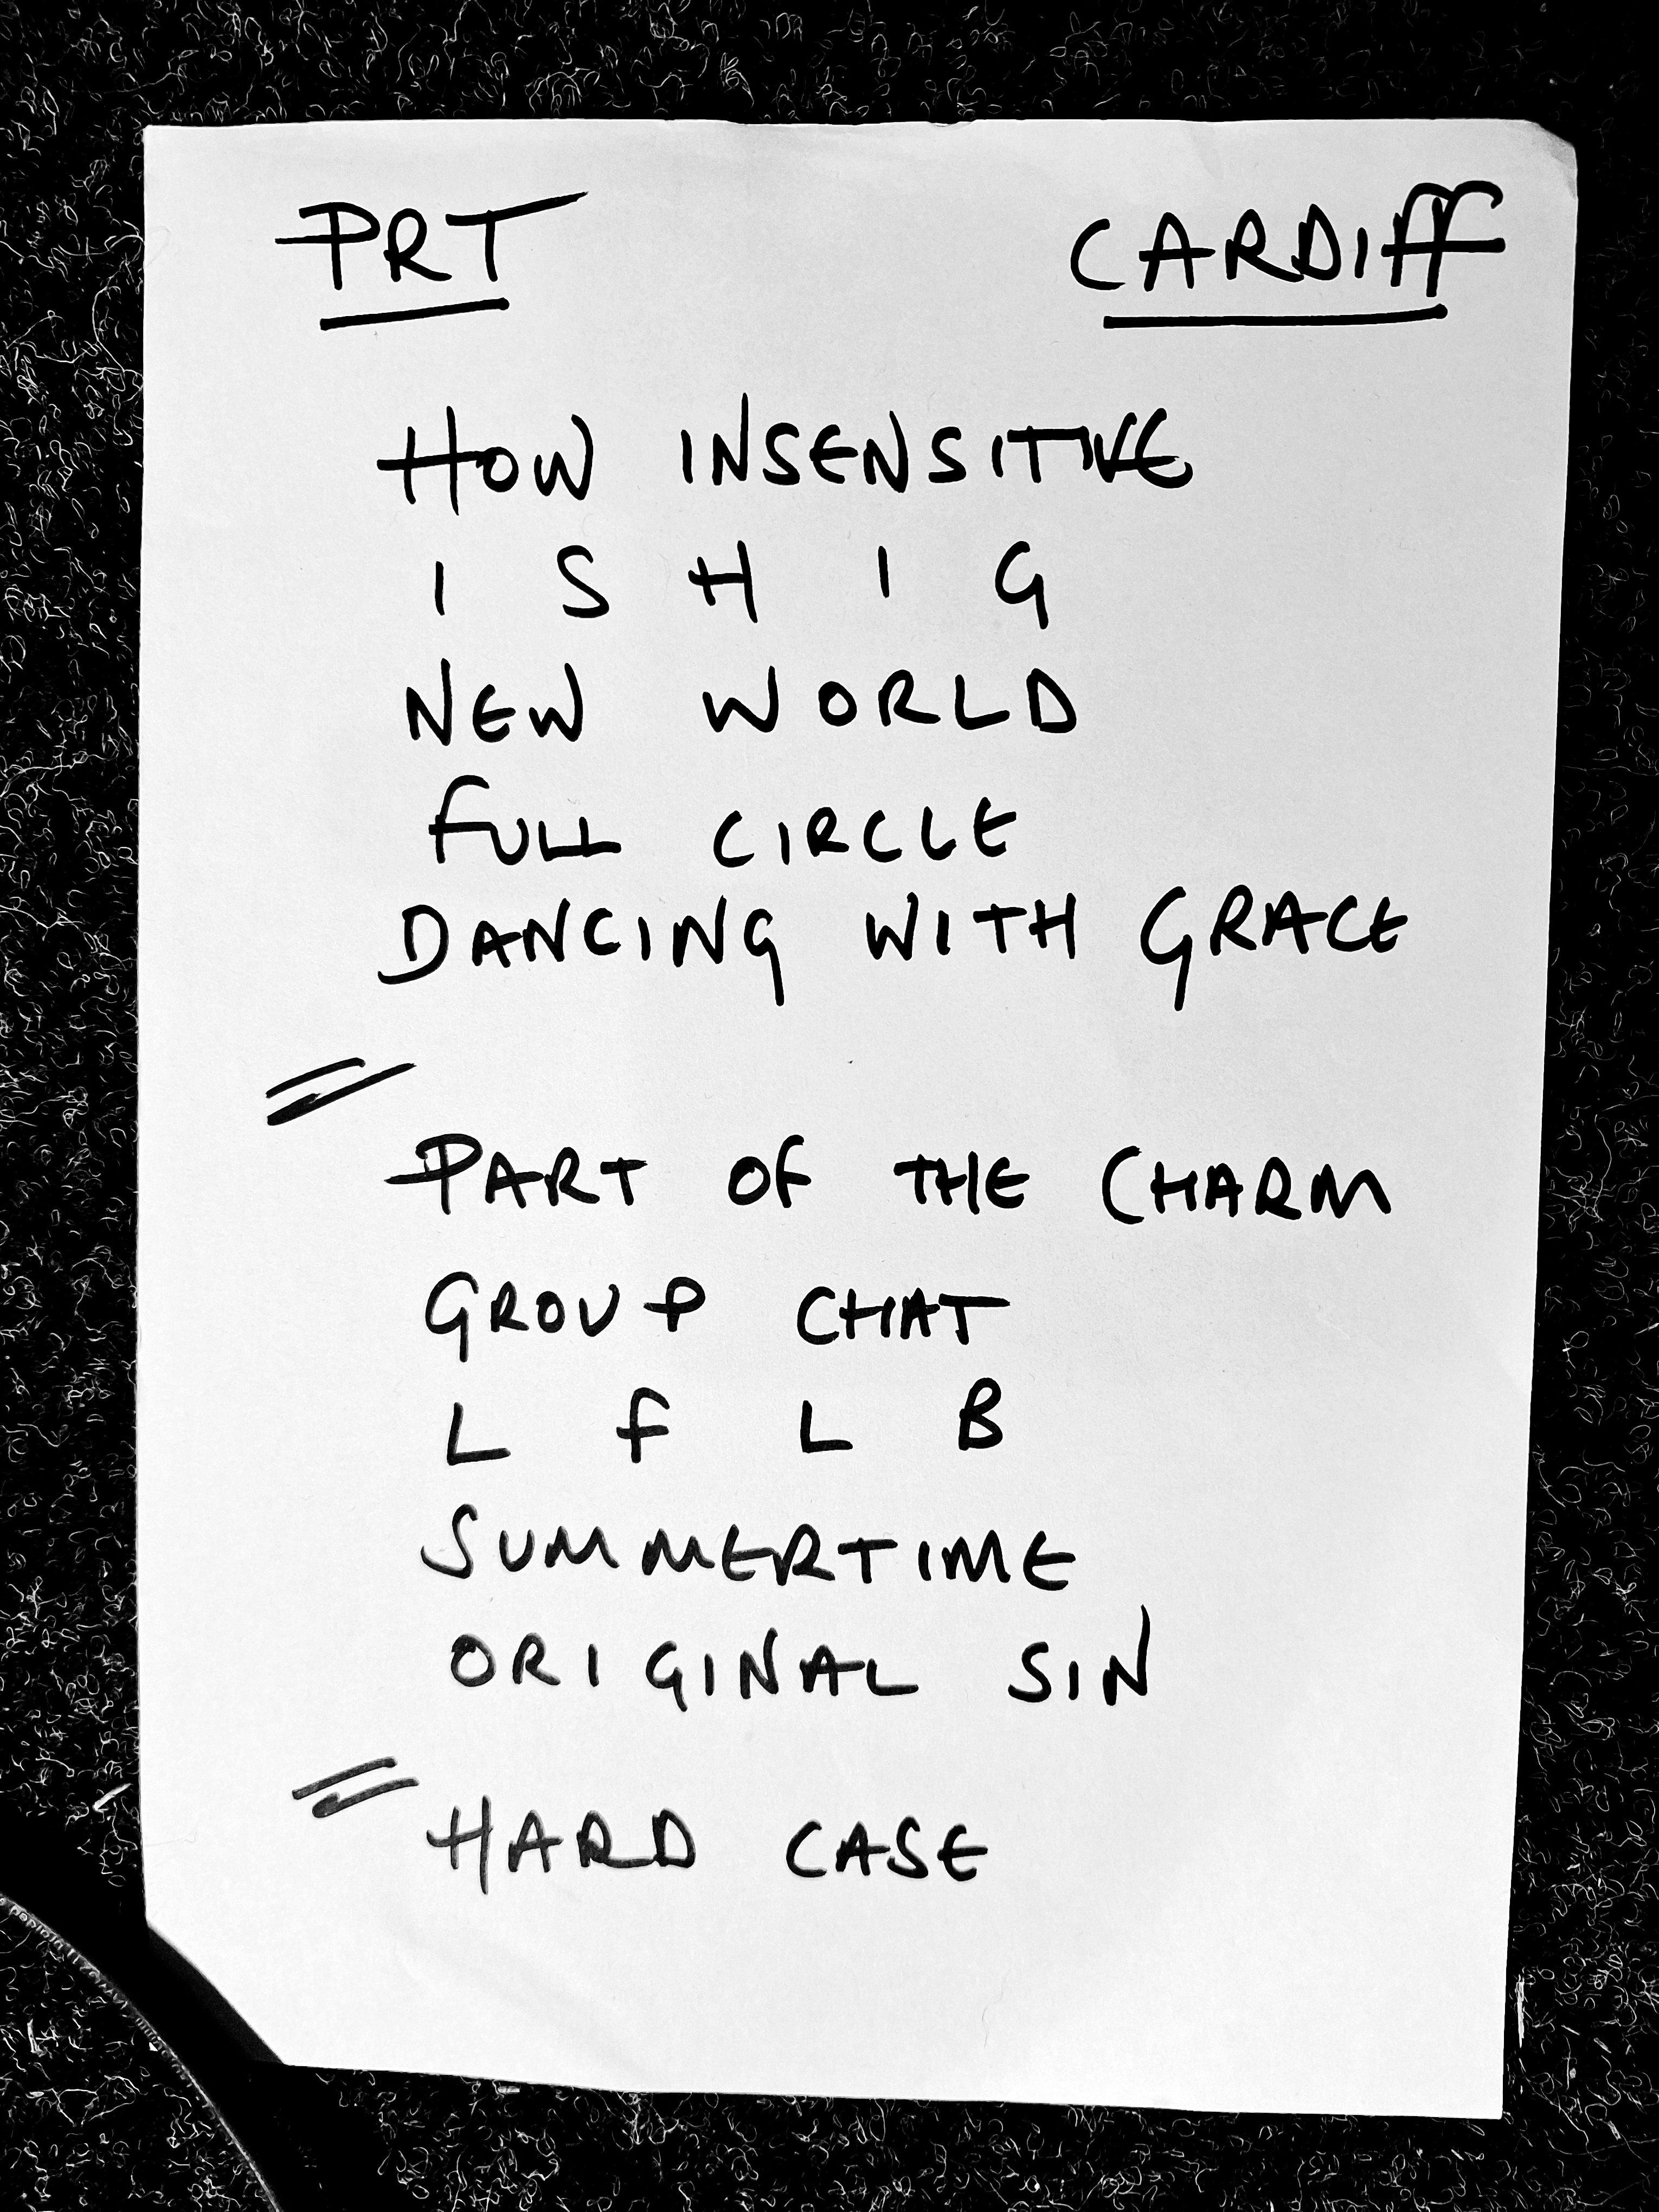 PRT CARDIFF
HOW INSENSITIVE
I S H I G
NEW WORLD
FULL CIRCLE
DANCING WITH GRACE
PART OF THE CHARM
GROUP CHAT
L F L B
SUMMERTIME
ORIGINAL SIN
HARD CASE